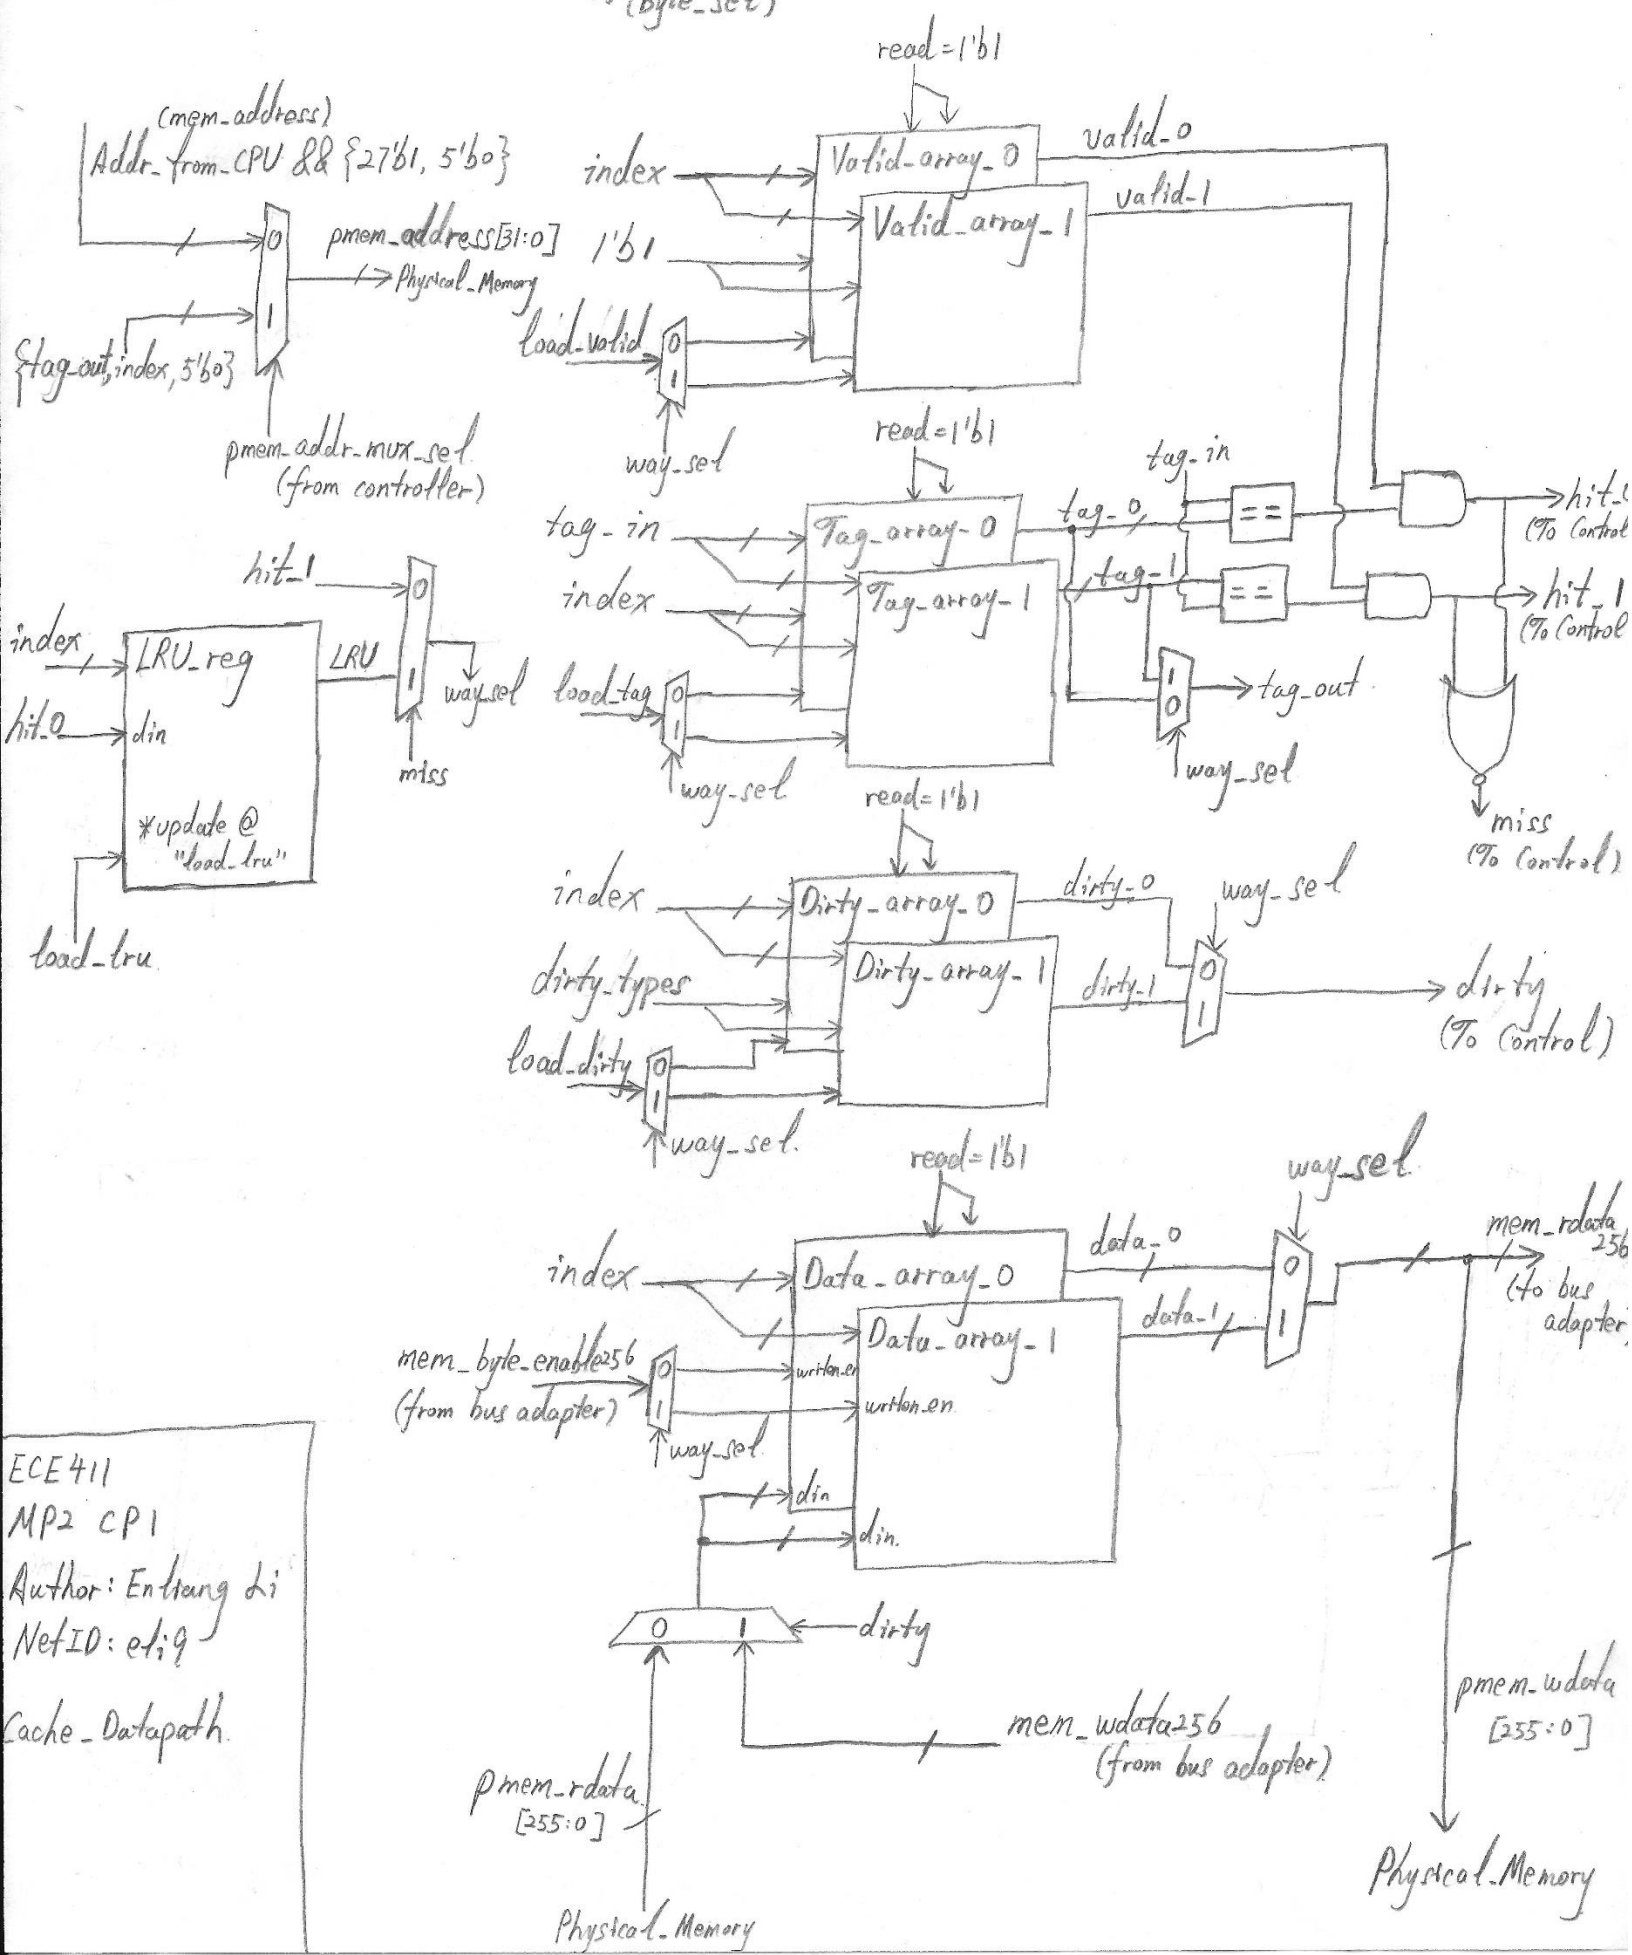 (byte_set)
read=1'b1
(mem_address)
Addr_from_CPU && {27'b1, 5'b0}
0
1
pmem_address[31:0]
Physical_Memory
{tag_out,index,5'b0}
pmem_addr_mux_sel
(from controller)
index
1'b1
load_valid
0
1
way_sel
Valid_array_0
Valid_array_1
valid_0
valid_1
read=1'b1
tag_in
index
load_tag
0
1
way_sel
Tag_array_0
Tag_array_1
tag_0
tag_1
tag_in
==
==
hit_
(To Control
hit_1
(To Control
1
0
tag_out
way_sel
miss
(To Control)
hit_1
0
1
index
LRU_reg
LRU
way_sel
hit_0
din
miss
*update @
"load_lru"
load_lru
read=1'b1
index
dirty_types
load_dirty
0
1
way_sel.
Dirty_array_0
Dirty_array_1
dirty_0
dirty_1
way_sel
0
1
dirty
(To Control)
read=1'b1
index
mem_byte_enable256
(from bus adapter)
0
1
way_sel
Data_array_0
Data_array_1
writen_en
writen_en
din
din.
data_0
data_1
way_sel
0
1
mem_rdata
256
(to bus
adapter)
0 1
dirty
pmem_rdata.
[255:0]
Physical_Memory
mem_wdata256
(from bus adapter)
pmem_wdata
[255:0]
Physical_Memory
ECE411
MP2 CP1
Author: Enliang Li
NetID: eli9
Cache_Datapath.